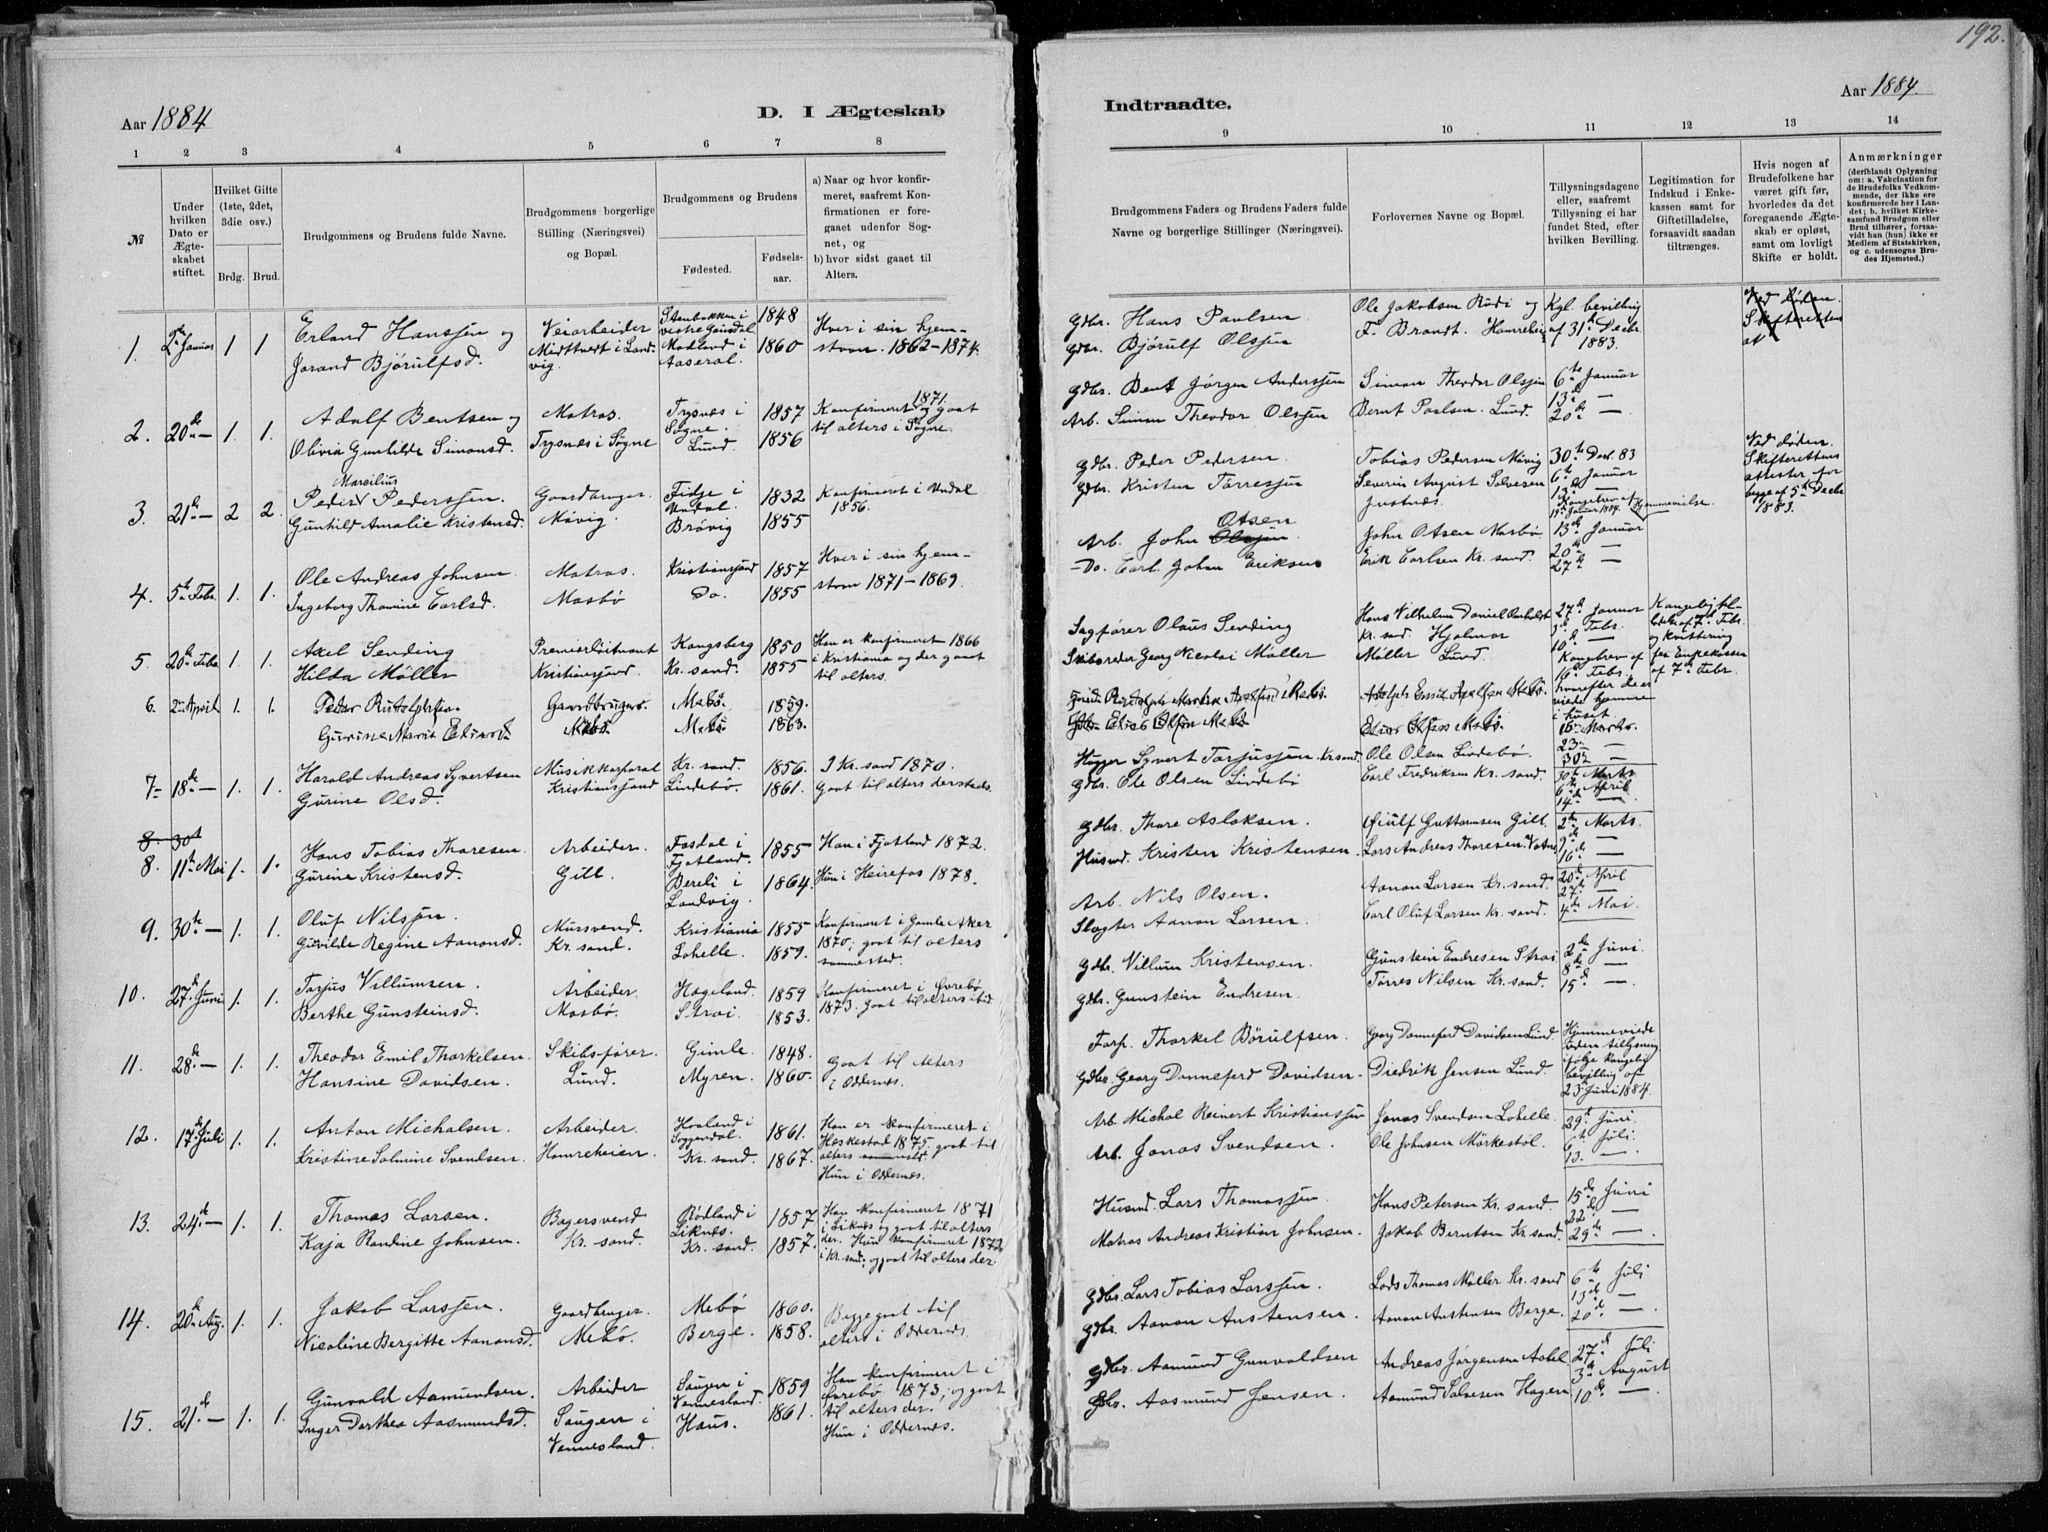 192.
Aar 1884
D. I Ægteskab
Indtraadte.
Aar 1884.
1 2 3 4 5 6 7 8
9 10 11 12 13 14
№
Under hvilken Dato er Ægteskabet stiftet.
Hvilket Gifte (1ste, 2det, 3die osv.)
Brdg. Brud.
Brudgommens og Brudens fulde Navne.
Brudgommens borgerlige Stilling (Næringsvei) og Bopæl.
Brudgommens og Brudens
Fødested.
Fødsels-aar.
a) Naar og hvor konfirmeret, saafremt Konfirmationen er foregaaet udenfor Sognet, og
b) hvor sidst gaaet til Alters.
Brudgommens Faders og Brudens Faders fulde Navne og borgerlige Stillinger (Næringsvei).
Forlovernes Navne og Bopæl.
Tillysningsdagene eller, saafremt Tillysning ei har fundet Sted, efter hvilken Bevilling.
Legitimation for Indskud i Enkekassen samt for Giftetilladelse, forsaavidt saadan tiltrænges.
Hvis nogen af Brudefolkene har været gift før, hvorledes da det foregaaende Ægteskab er opløst, samt om lovligt Skifte er holdt.
Anmærkninger
(deriblandt Oplysning om: a. Vakcination for de Brudefolks Vedkommende, der ikke ere konfirmerede her i Landet; b. hvilket Kirkesamfund Brudgom eller Brud tilhører, forsaavidt han (hun) ikke er Medlem af Statskirken, og c. udensogns Brudes Hjemsted.)
1. 2de Januar 1 1 Erland Hanssen og Veiarbeider Stenbakken i vestre Gausdal 1848 Hver i sin hjem-
Jorand Bjørulfsd. Midttveit i Landvig. Modland i Aaseral. 1860 stavn. 1862-1874.
Gdbr. Hans Paulsen Ole Jakobsen Rudi og Kgl. bevilling
Gdbr. Bjørulf Olssen F. Brandt. Hamrehei af 31te Decbr 1883.
Ved døden. Skifteretten
2. 20de — 1. 1. Adolf Bentsen og Matros. Trysnes i Søgne. 1857 Konfirmeret 1871 og gaat
Olivia Gunhilde Simonsd. Trysnes i Søgne Lund. 1856 til alters i Søgne.
Gdbr. Bent Jørgen Anderssen Simon Theodor Olssen 6te Januar
Arb. Simon Theodor Olssen Bernt Paulsen Lund. 13de — 20de —
3. 21de — 2 2. Peder Marcilius Pederssen. Gaardbruger. Fidje i Undal. 1832 Konfirmeret i Undal
Gunhild Amalie Kristensd. Måvig. Bråvig 1855 1856.
Gdbr. Peder Pedersen Tobias Pedersen Måvig 30te Decb. 83
Gdbr. Kristen Tørressen Severin August Salvesen Justnæs. 6te Januar 13de
Kongebrev af 19de Januar 1884. Hjemmevielse.
Ved døden. Skifterettens attester for begge af 5te Decbr 1883.
4. 5te Febr. 1. 1. Ole Andreas Johnsen Matros. Kristianssand 1857 Hver i sin hjem-
Ingeborg Thomine Carlsd. Mosbø Do. 1855 stavn 1871-1869.
Arb. John Otsen John Otsen Mosbø 13de Januar
Do. Carl Johan Eriksen Erik Carlsen Kr. sand. 20de — 27de —
5. 20de Febr. 1. 1. Axel Sending Premierløitnant Kongsberg 1850 Han er konfirmeret 1866
Hilda Møller Kristianssand Kr. sand. 1855 i Kristiania og der gaat til alters.
Sagfører Olaus Sending Hans Vilhelm Daniel Kr. sand. Hjalmar 27de Januar
Skibsreder Georg Nicolai Møller Møller Lund. 3de Febr. 10de —
Kongebrev af 16de Febr. hvorefter de er viede hjemme i huset.
af 7de Febr. og kvittering fra Enkekassen af 7de Febr.
6. 2den April 1. 1. Peter Gaardbruger. Mebø. 1859.
Gurine Marie Mebø. Mebø 1863.
Gdbr. Elias Olsen Mebø Elias Olsen Mebø. 16de Marts. 23de — 30te —
7. 18de — 1. 1. Harald Andreas Syvertsen Musikkorporal Kr. sand. 1856. I Kr. sand 1870.
Gurine Olsd. Kristianssand Lindebø. 1861. Gaat til alters dersteds.
Hugger Syvert Tarjussen Kr.sand. Ole Olsen Lindebø 30te Marts
Gdbr. Ole Olsen Lindebø Carl Fredriksen Kr. sand. 6te April 14de —
8. 30te
8. 11te Mai 1. 1. Hans Tobias Thoresen. Arbeider. Fosdal i Fjotland. 1855 Han i Fjotland 1872.
Gurine Kristensd. Gill. Bereli i Landvig. 1864. Hun i Heirefos 1878.
Gdbr. Thore Aslaksen. Øiulf Guttormsen Gill. 2den Marts.
Husmd. Kristen Kristensen. Lars Andreas Thoresen Vatne 9de — 16de —
9. 30te — 1. 1. Oluf Nilssen. Mursvend. Kristiania 1855 Konfirmeret i Gamle Aker
Gurilde Regine Aanonsd. Kr. sand. Lohelle. 1859. 1870, gaat til alters sammested.
Arb. Nils Olsen. Aanon Larsen Kr. sand. 20de April
Slagter Aanon Larsen. Carl Oluf Larsen Kr. sand. 27de — 4de Mai.
10. 27de Juni 1. 1. Tarjus Villumsen. Arbeider. Hægeland. 1859 Konfirmeret i Øvrebø
Berthe Gunsteinsd. Mosbø. Strai. 1853. 1873. Gaat til alters ibid.
Gdbr. Villum Kristensen. Gunstein Endresen Strai 2den Juni
Gdbr. Gunstein Endresen. Tørres Nilsen Kr. sand. 8de — 15de —
11. 28de — 1. 1. Theodor Emil Thorkelsen. Skibsfører. Gimle. 1848. Gaat til alters
Hansine Davidsen. Lund. Myren. 1860. i Oddernes.
Forp. Thorkel Børulfsen. Georg Donneferd Davidsen Lund. Hjemmeviede uden tillysning
Gdbr. Georg Donneferd Davidsen. Diedrik Jensen Lund. ifølge kongelig bevilling af 23de Juni 1884.
12. 17de Juli 1. 1. Anton Michalsen. Arbeider. Hovland i Soggendal. 1861. Han er konfirmeret i Heskestad 1875.
Kristine Salmine Svendsen. Hamreheien. Kr. sand. 1867. gaat til alters sammested. Hun i Oddernes.
Arb. Michal Reinert Kristianssen Jonas Svendsen Lohelle. 29de Juni.
Arb. Jonas Svendsen. Ole Johnsen Mørkestøl. 6te Juli. 13. —
13. 24de — 1. 1. Thomas Larsen. Bagersvend Rødland i Liknes. 1857 Han konfirmeret 1871 i Liknes og gaat til alters
Kaja Randine Johnsen. Kr. sand. Kr. sand. 1857. der. Hun konfirmeret 1872 i Kr. sand. og gaat til alters der.
Husmd. Lars Thomassen. Hans Petersen Kr. sand. 15de Juni
Matros Andreas Kristian Johnsen. Jakob Berntsen Kr. sand. 22de — 29de —
14. 20de Aug. 1. 1. Jakob Larssen. Gaardbruger. Mebø 1860. Begge gaat til
Nicoline Bergitte Aanonsd. Mebø. Berge. 1858. alters i Oddernes.
Gdbr. Lars Tobias Larssen. Lods Thomas Møller Kr. sand 6te Juli
Gdbr. Aanon Austensen. Aanon Austensen Berge. 13de — 20de —
15. 21de — 1. 1. Gunvald Aamundsen. Arbeider Saugen i Vennesland. 1859 Han konfirmeret i Øvrebø 1873, og gaat
Inger Dorthea Aasmundsd. Saugen i Vennesland. Haus. 1861. til alters der. Hun i Oddernes.
Gdbr. Aamund Gunvaldsen Andreas Jørgensen 27de Juli
Gdbr. Aasmund Jensen. Aamund Salvesen Hagen. 3de August 10de —